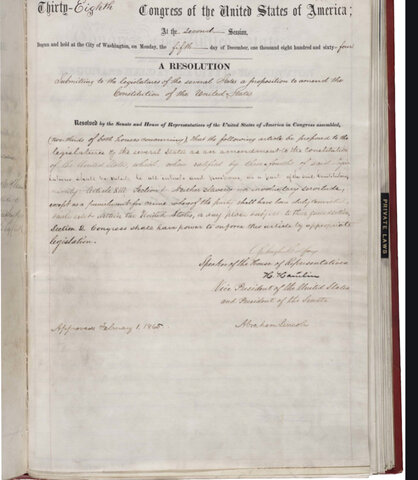 Thirty-Eighth Congress of the United States of America;
At the second Session,
Begun and held at the City of Washington, on Monday, the fifth day of December, one thousand eight hundred and sixty-four
A RESOLUTION
Submitting to the legislatures of the several States a proposition to amend the
Constitution of the United States
Resolved by the Senate and House of Representatives of the United States of America in Congress assembled,
(two-thirds of both houses concurring) That the following article be proposed to the
legislatures of the several States as an amendment to the constitution
of the United States, which, when ratified by three-fourths of said
shall be valid, to all intents and purposes, as a part of the said Constitution,
namely: Article XIII. Section 1. Neither slavery nor involuntary servitude,
except as a punishment for crime whereof the party shall have been duly convicted,
shall exist within the United States, or any place subject to their jurisdiction.
Section 2. Congress shall have power to enforce this article by appropriate
legislation.
Speaker of the House of Representatives
H. Hamlin
Vice President of the United States
and President of the Senate
Approved February 1, 1865.
Abraham Lincoln
PRIVATE LAWS